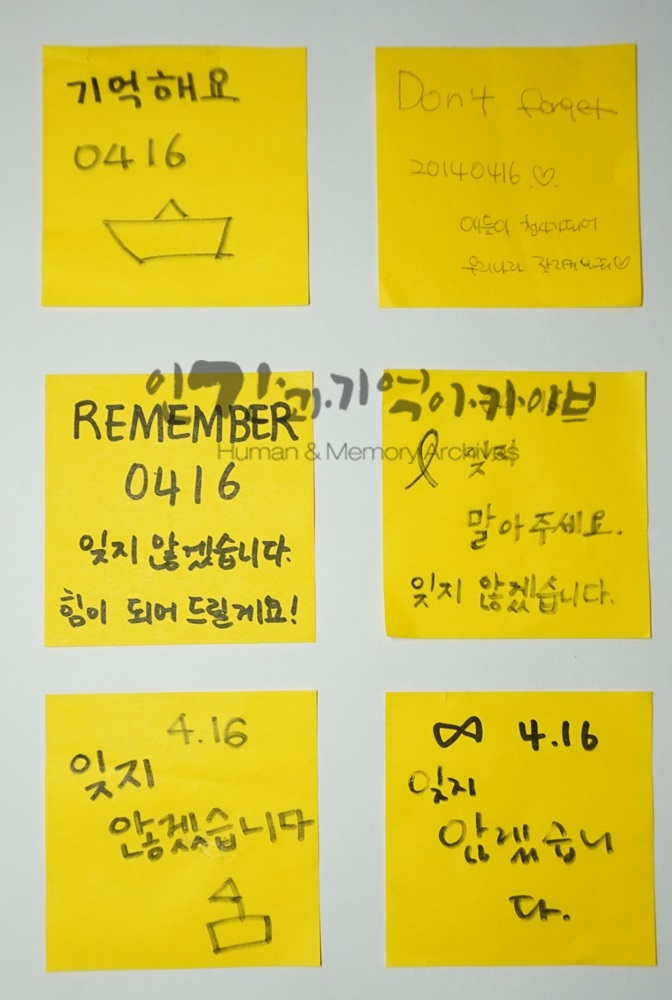 기억해요
0416
Don't forget
20140416 ♡.
애들아 천사가되어
우리나라 잘지켜봐줘♡
인간과 기억 아카이브
Human & Memory Archives
REMEMBER
0416
잊지 않겠습니다.
힘이 되어 드릴게요!
잊지
말아주세요.
잊지 않겠습니다.
4.16
잊지
않겠습니다
∞ 4.16
잊지
않겠습니
다.